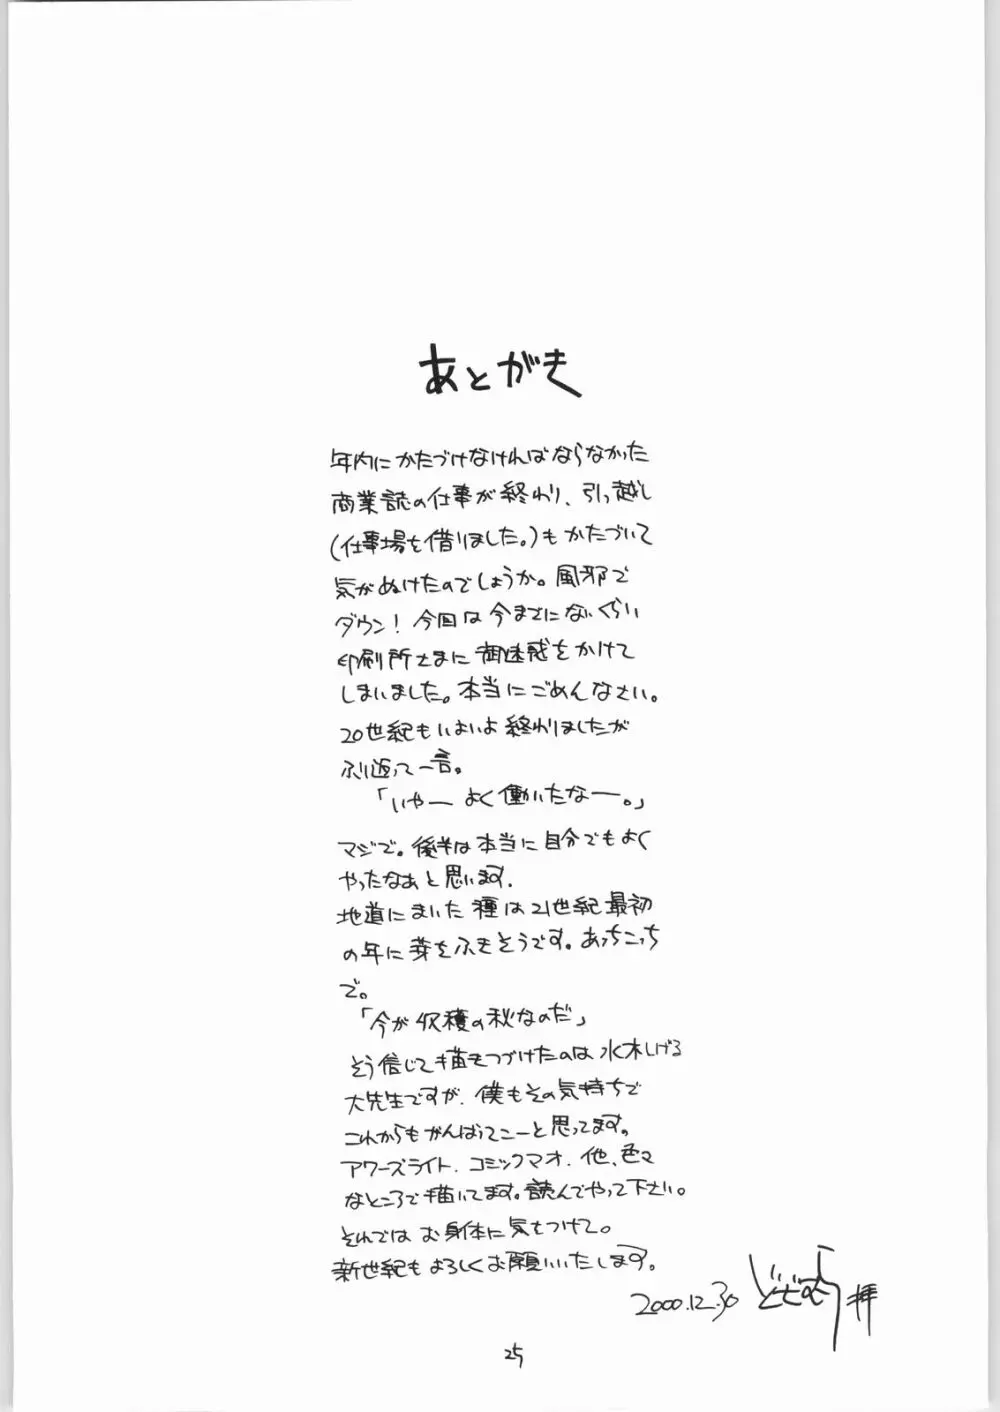 あとがき
年内にかたづけなければならなかった
商業誌の仕事が終わり、引っ越し
(仕事場を借りました。)もかたづいて
気がぬけたのでしょうか。風邪で
ダウン!今回は今までにないくらい
印刷所さまに御迷惑をかけて
しまいました。本当にごめんなさい。
20世紀もいよいよ終わりましたが
ふり返って一言。
「いやー よく働いたなー。」
マジで。後半は本当に自分でもよく
やったなぁと思います.
地道にまいた種は21世紀最初
の年に芽をふきそうです。あっちこっち
で。
「今が収穫の秋なのだ」
そう信じて描きつづけたのは水木しげる
大先生ですが、僕もその気持ちで
これからもがんばってこーと思ってます。
アワーズライト.コミックマオ.他、色々
なところで描いてます。読んでやって下さい。
それではお身体に気をつけて。
新世紀もよろしくお願いいたします。
2000.12.30 どざむら 拝
25